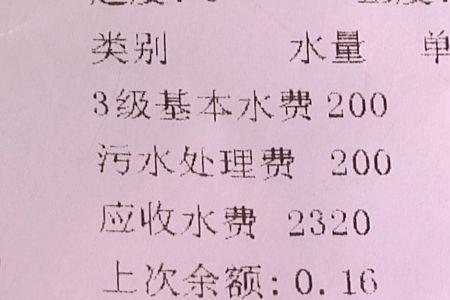 类别 水量 单
3级基本水费 200
污水处理费 200
应收水费 2320
上次余额: 0.16